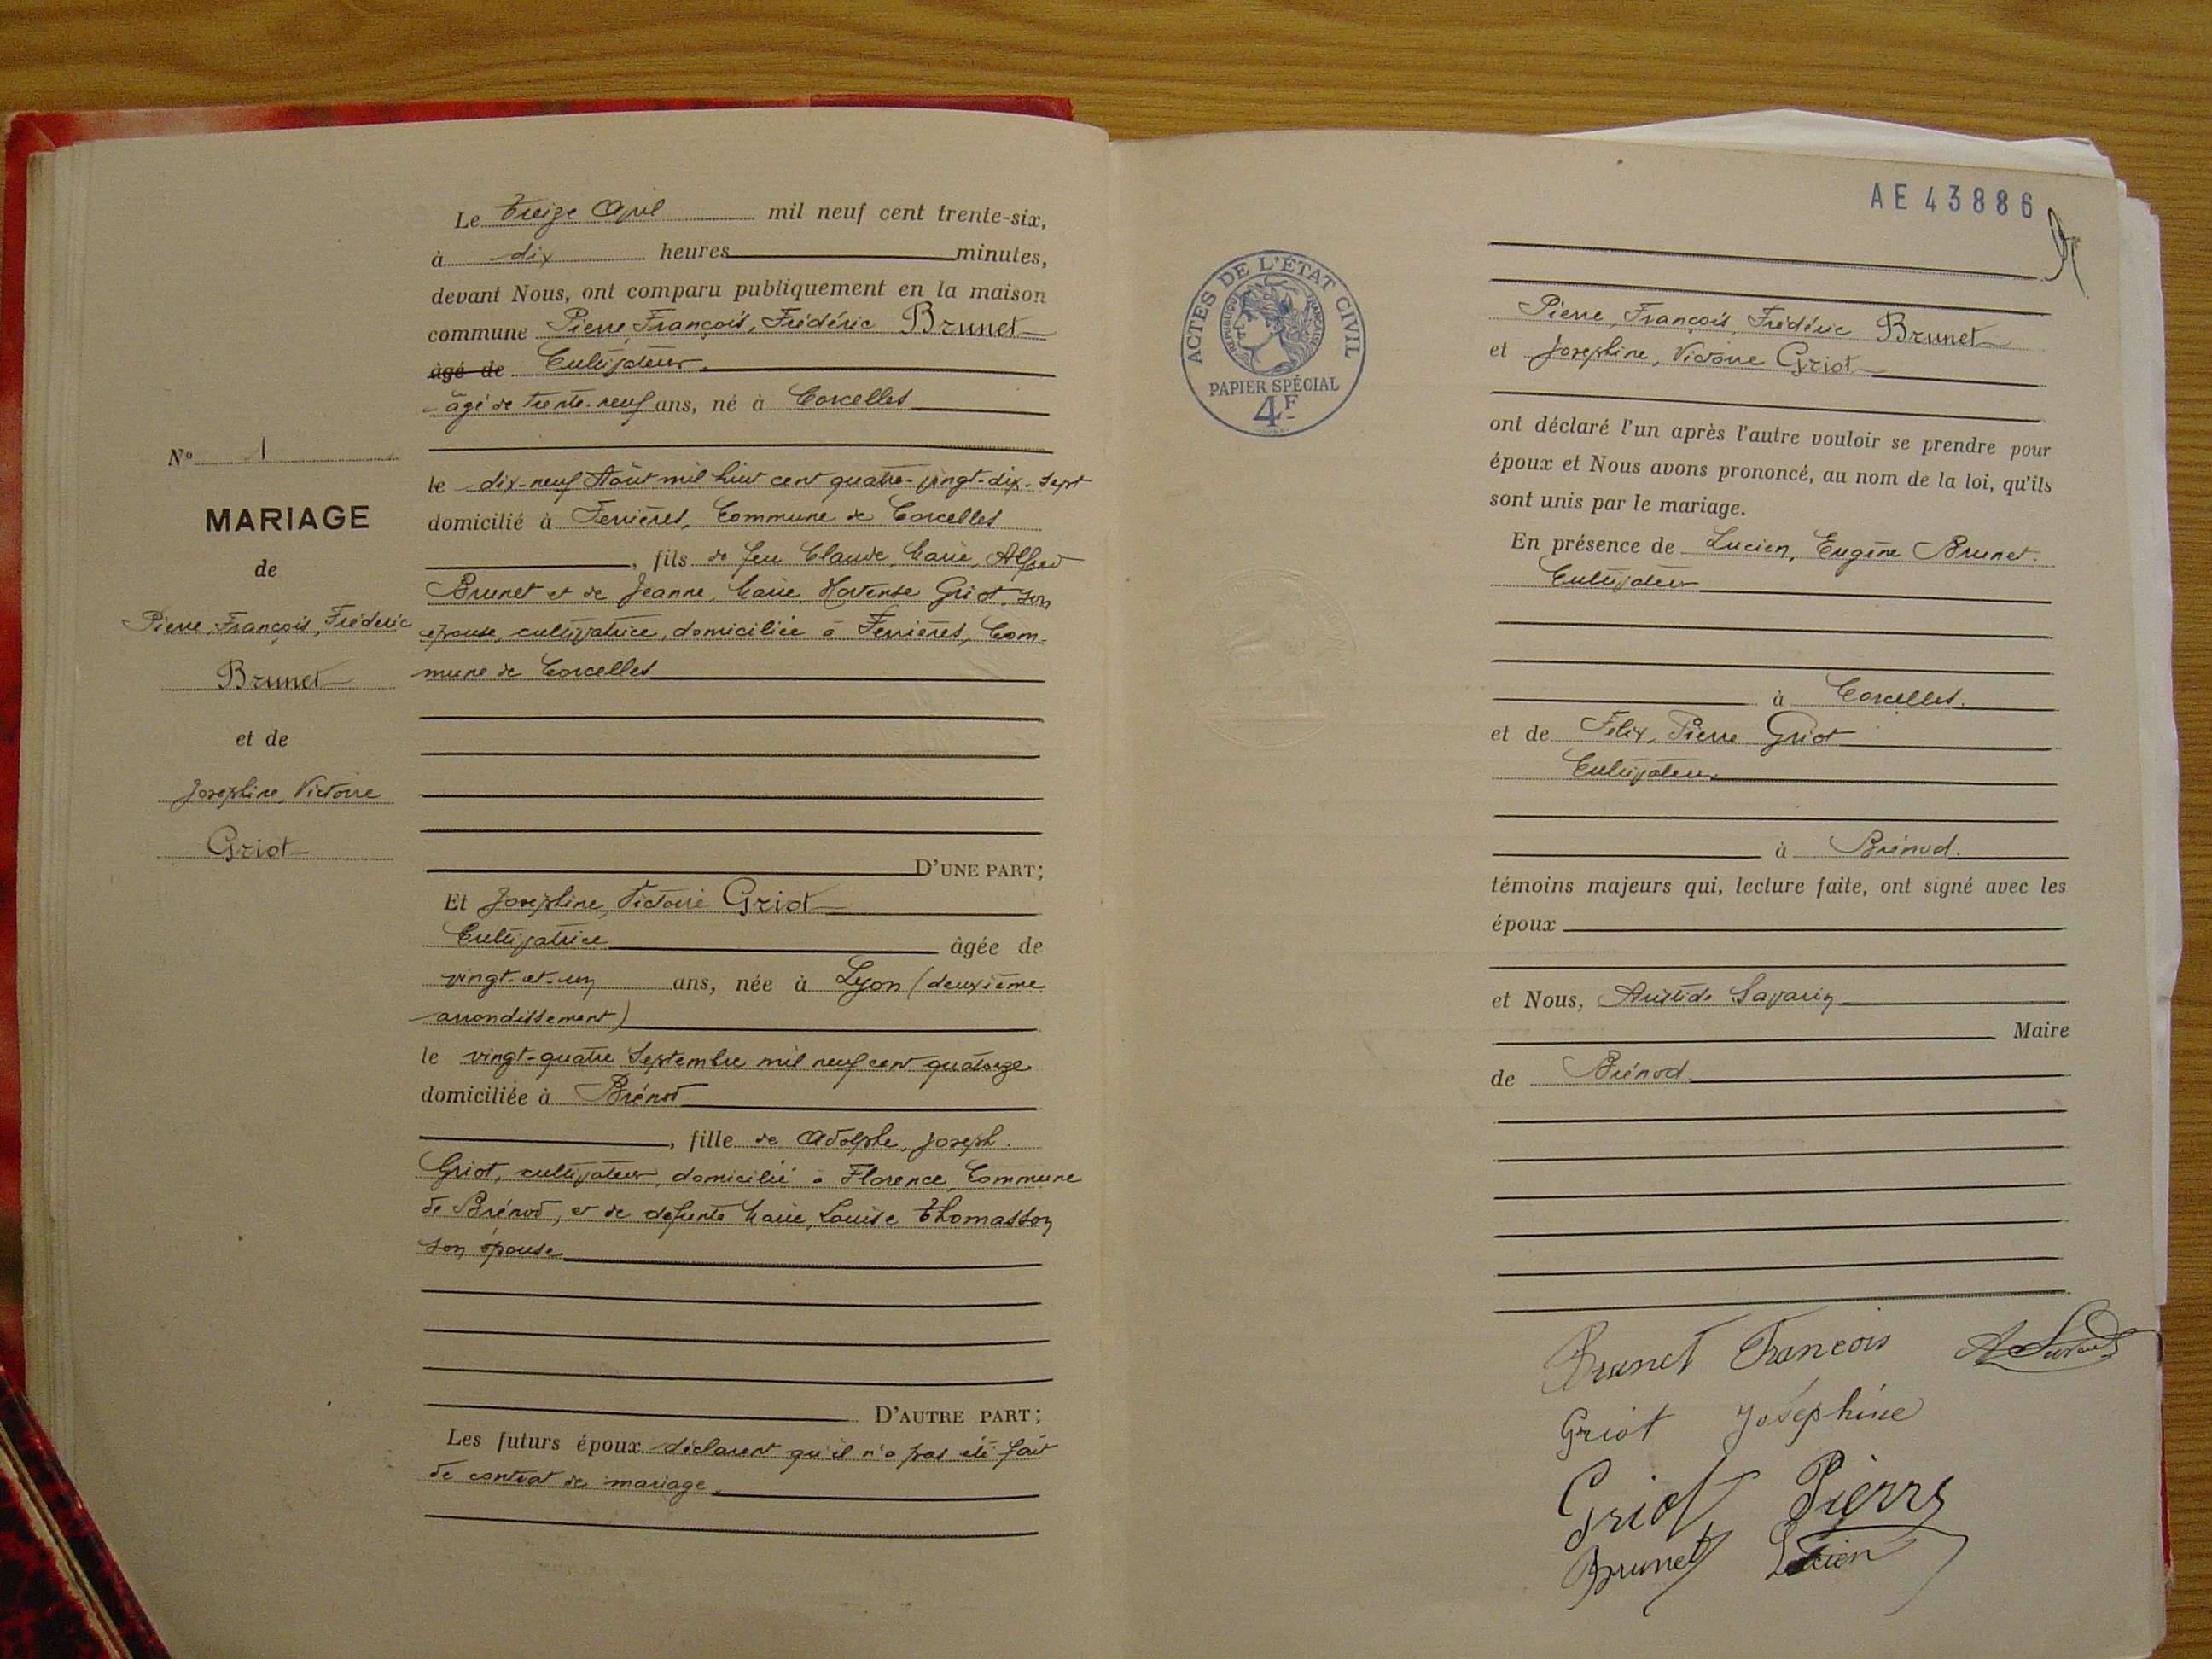 Le treize Avril mil neuf cent trente-six,
à dix heures minutes,
devant Nous, ont comparu publiquement en la maison
commune Pierre, François, Frédéric Brunet
âgé de Cultivateur
âgé de trente-neuf ans, né à Corcelles
le dix-neuf Août mil huit cent quatre-vingt-dix-sept
domicilié à Ferrières, Commune de Corcelles
, fils de feu Claude, Marie, Alfred
Brunet et de Jeanne, Marie, Hortense Griot, son
épouse, cultivatrice, domiciliée à Ferrières, Com-
mune de Corcelles
D'UNE PART;
Et Joséphine, Victoire Griot
Cultivatrice âgée de
vingt-et-un ans, née à Lyon (deuxième
arrondissement)
le vingt-quatre Septembre mil neuf cent quatorze
domiciliée à Brénod
, fille de Adolphe, Joseph
Griot, cultivateur, domicilié à Florence, Commune
de Brénod, et de défunte Marie, Louise Thomasson
son épouse
D'AUTRE PART;
Les futurs époux déclarent qu'il n'a pas été fait
de contrat de mariage.
N° 1
MARIAGE
de
Pierre, François, Frédéric
Brunet
et de
Joséphine, Victoire
Griot
AE 43886
ACTES DE L'ÉTAT CIVIL
RÉPUBLIQUE FRANÇAISE
PAPIER SPÉCIAL
4F
Pierre, François, Frédéric Brunet
et Joséphine, Victoire Griot
ont déclaré l'un après l'autre vouloir se prendre pour
époux et Nous avons prononcé, au nom de la loi, qu'ils
sont unis par le mariage.
En présence de Lucien, Eugène Brunet.
Cultivateur
à Corcelles.
et de Félix, Pierre Griot
Cultivateur
à Brénod.
témoins majeurs qui, lecture faite, ont signé avec les
époux
et Nous, Aristide Savarin
Maire
de Brénod
Brunet François
Griot Joséphine
Griot Pierre
Brunet Lucien